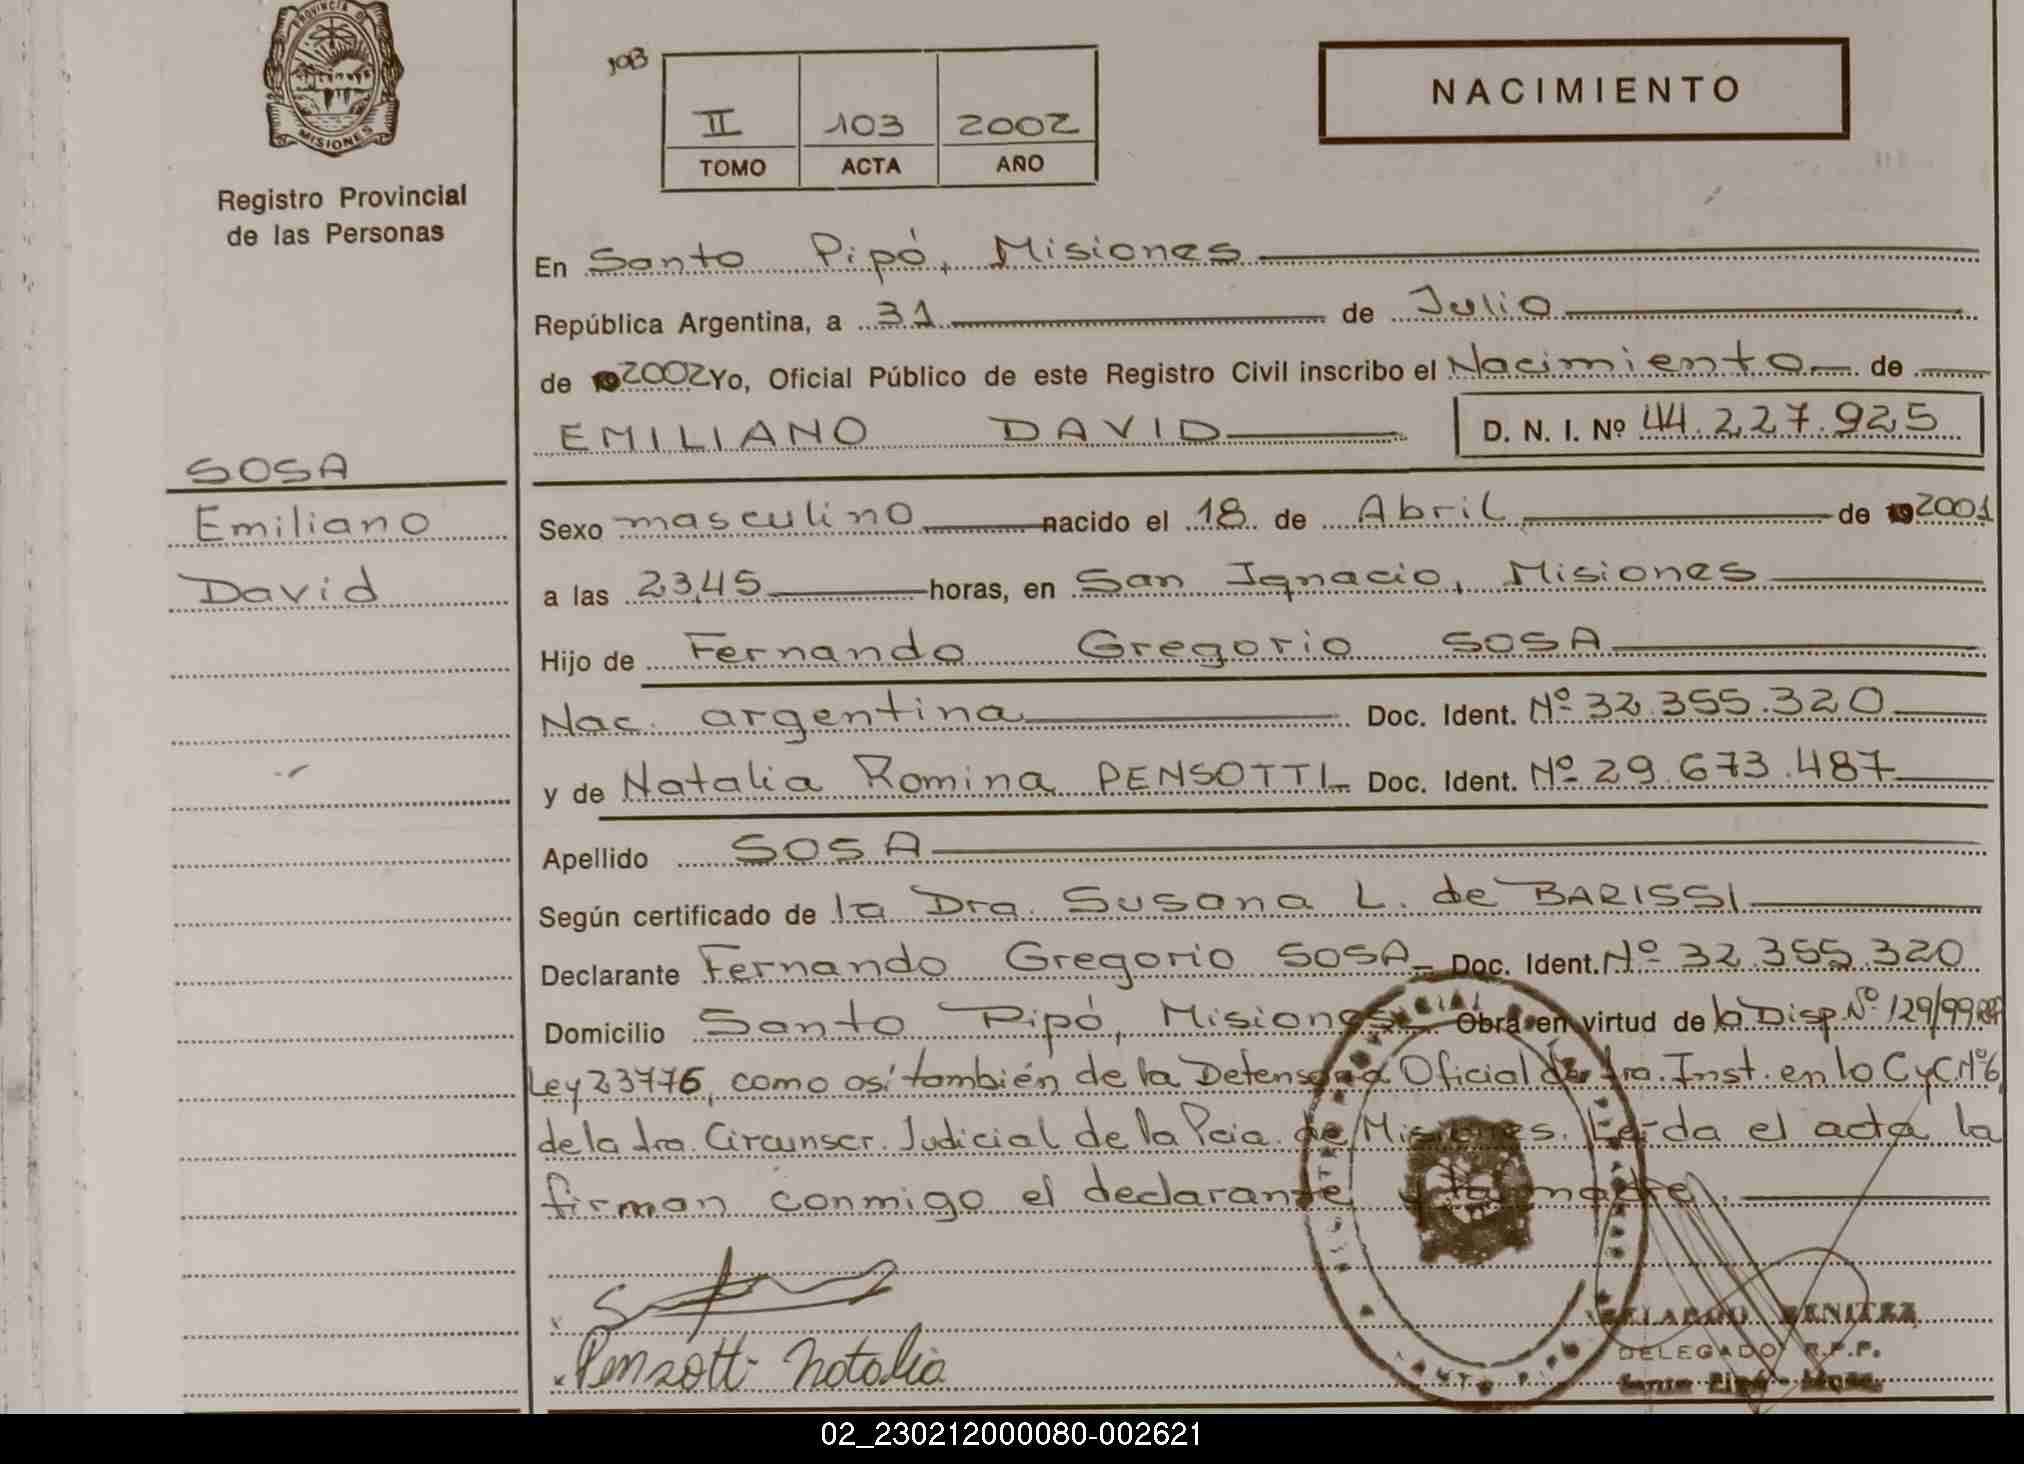 PROVINCIA DE
MISIONES
Registro Provincial
de las Personas
103
II 103 2002
TOMO ACTA AÑO
NACIMIENTO
En Santo Pipó, Misiones
República Argentina, a 31 de Julio
de 2002 Yo, Oficial Público de este Registro Civil inscribo el Nacimiento de
EMILIANO DAVID D. N. I. Nº 44.227.925
SOSA
Emiliano
David
Sexo masculino nacido el 18 de Abril de 2001
a las 23,45 horas, en San Ignacio, Misiones
Hijo de Fernando Gregorio SOSA
Nac. argentina Doc. Ident. Nº 32.355.320
y de Natalia Romina PENSOTTI Doc. Ident. Nº 29.673.487
Apellido SOSA
Según certificado de la Dra. Susana L. de BARISSI
Declarante Fernando Gregorio SOSA Doc. Ident. Nº 32.355.320
Domicilio Santo Pipó, Misiones Obra en virtud de la Disp. Nº 129/99
Ley 23776, como así también de la Defensoria Oficial de 1ra. Inst. en lo C y C Nº 6
de la 1ra. Circunscr. Judicial de la Pcia. de Misiones. Leída el acta la
firman conmigo el declarante y la madre.
Pensotti Natalia
BENITEZ
DELEGADO R.P.P.
Santo Pipó - Mnes.
02_230212000080-002621